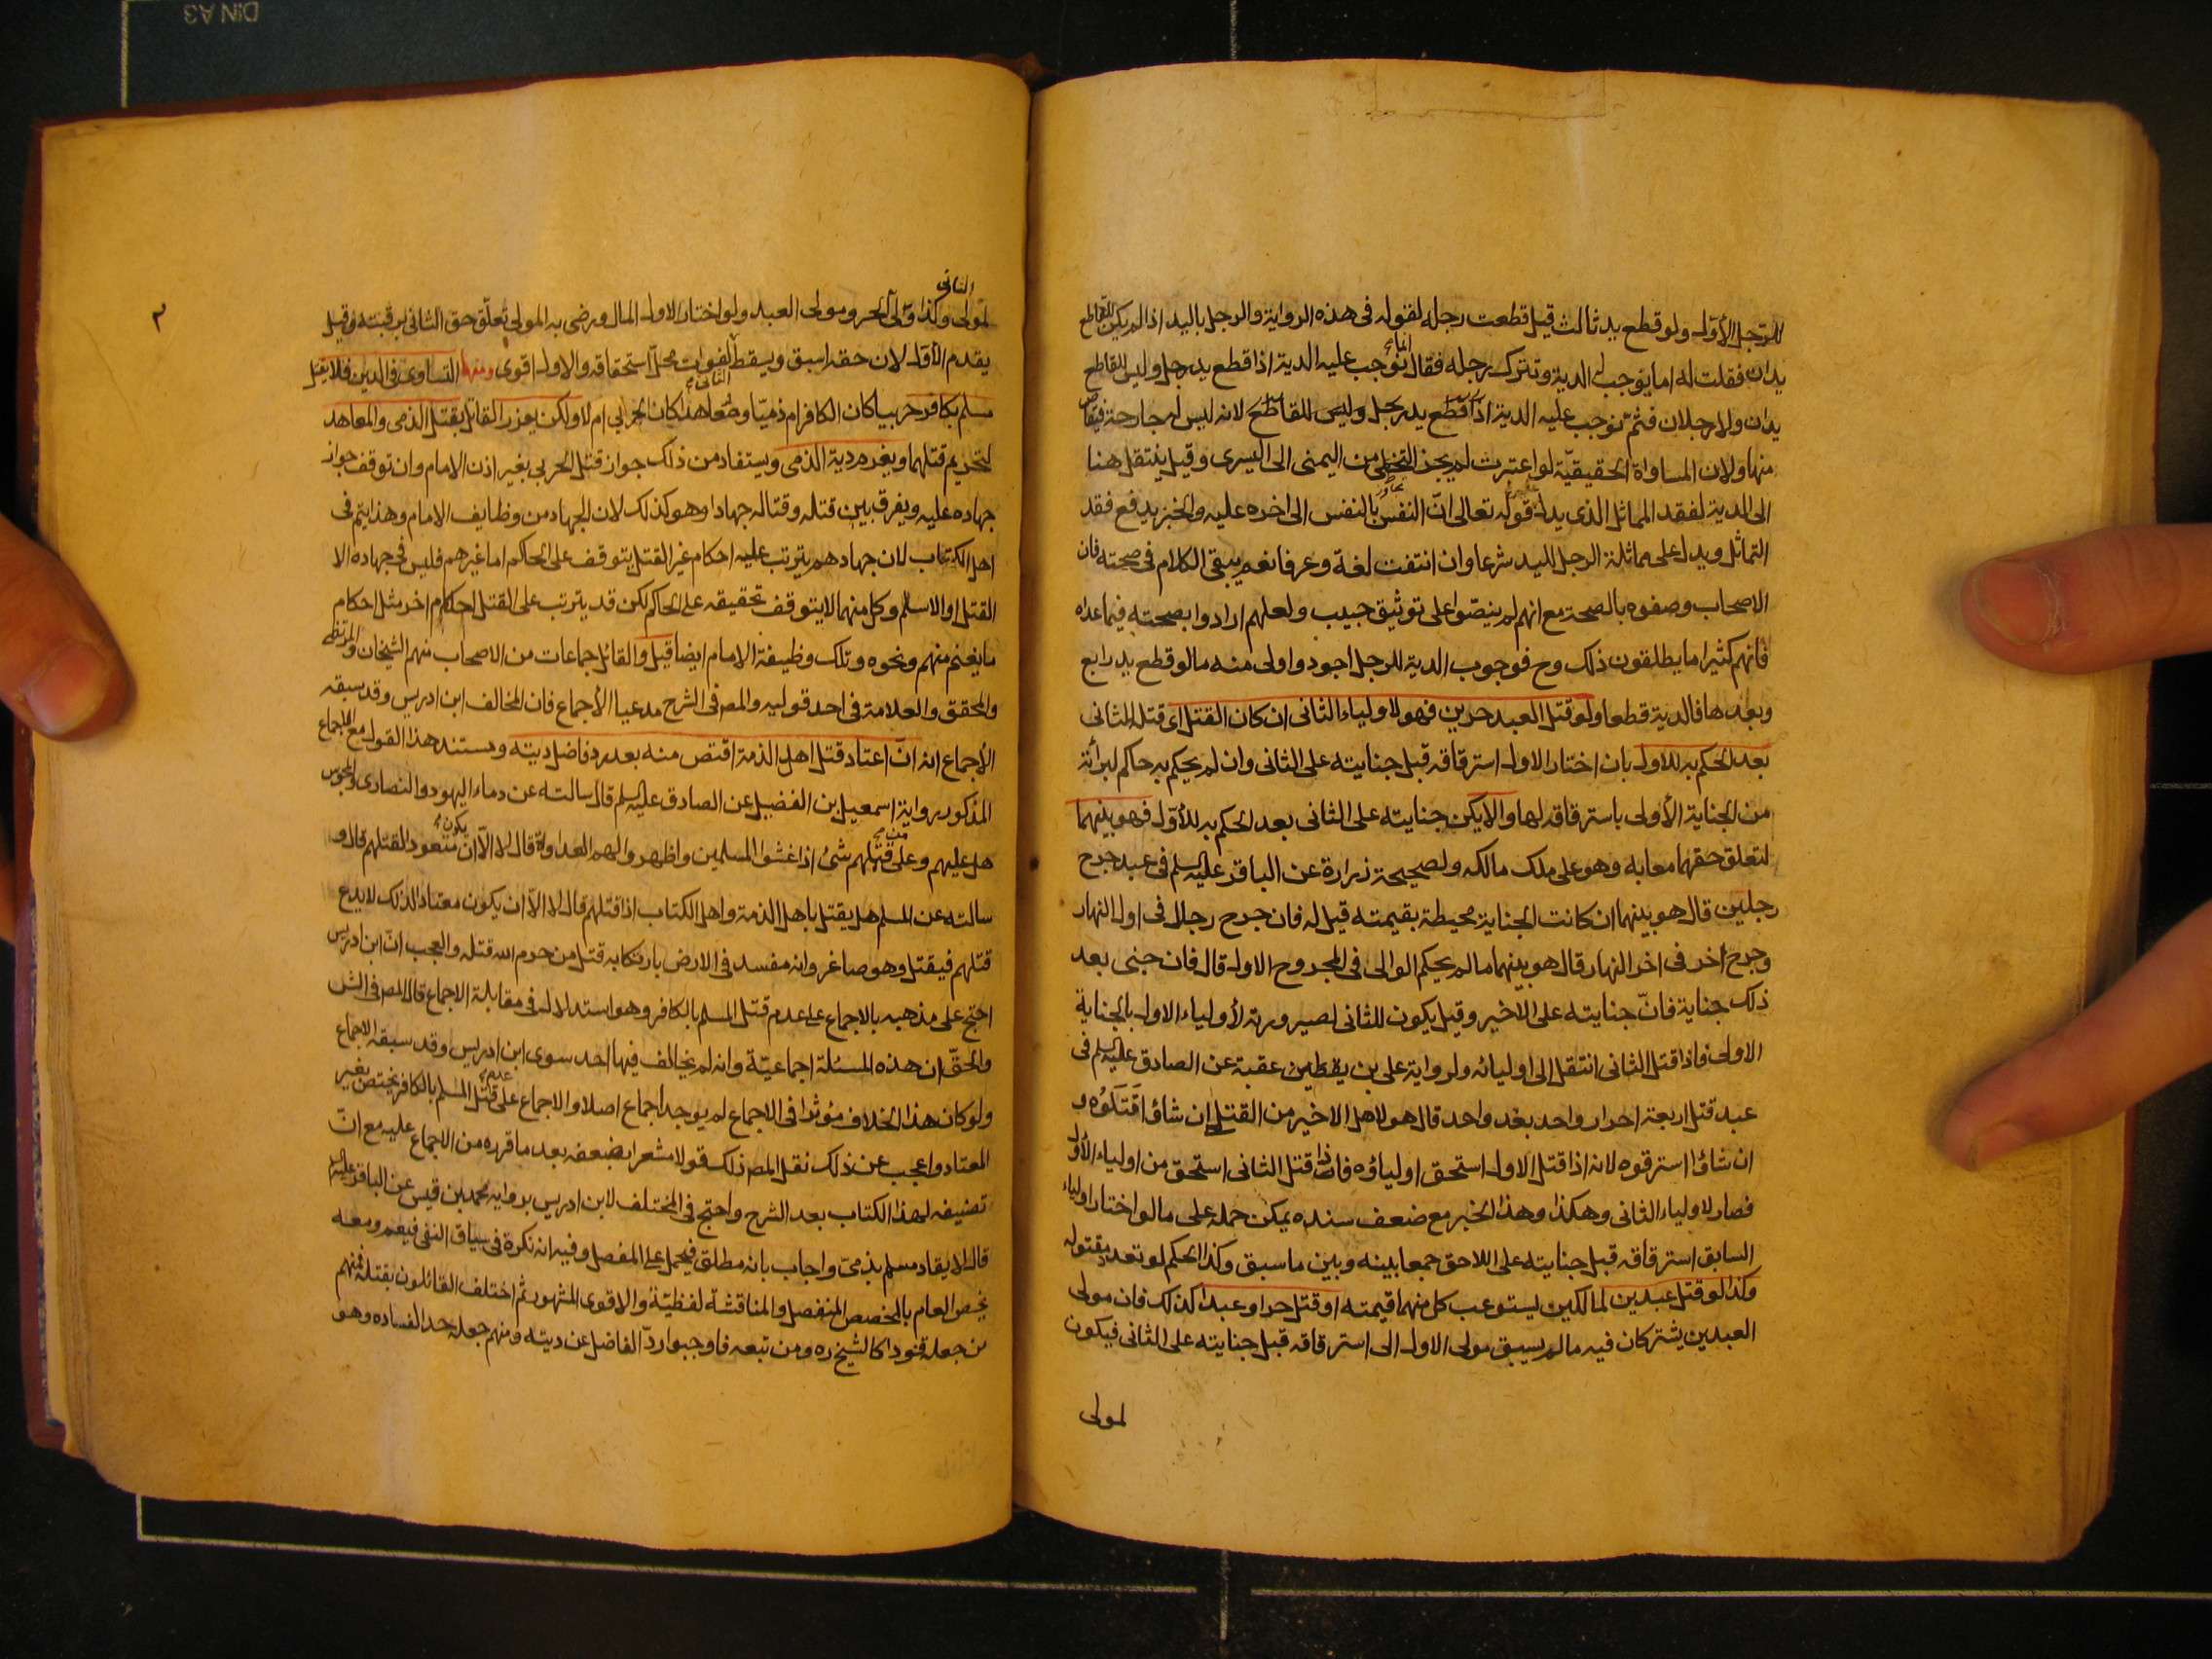 للرّجل الأوّل ولو قطع يد ثالث قيل قطعت رجله لقوله فى هذه الرواية والرجل باليد اذا لم يكن للقاطع
يدان فقلت له اما يوجب له الدية وتترك رجله فقال انما توجب عليه الدية اذا قطع يد رجل وليس للقاطع
يدان ولا رجلان فثمّ توجب عليه الدية اذا قطع يد رجل وليس للقاطع لانه ليس له جارحة فيقاص
منها ولان المساواة الحقيقيّة لو اعتبرت لم يجز التخطى من اليمنى الى اليسرى وقيل ينتقل هنا
الى الدية لفقد المماثل الذى يدل قوله تعالى انّ النفس بالنفس الى اخره عليه والخبر يدفع فقد
التماثل ويدل على مماثلة الرجل لليد شرعا وان انتفت لغة وعرفا نعم يبقى الكلام فى صحته فان
الاصحاب وصفوه بالصحة مع انهم لم ينصّوا على توثيق حبيب ولعلهم ارادوا بصحته فيما عداه
فانهم كثيرا ما يطلقون ذلك وح فوجوب الدية للرجل اجود واولى منه ما لو قطع يد رابع
وبعدها فالدية قطعا ولو قتل العبد حرين فهو لاولياء الثانى ان كان القتل اى قتله الثانى
بعد الحكم به للاول بان اختار الاول استرقاقه قبل جنايته على الثانى وان لم يحكم به حاكم لبرائة
من الجناية الأولى باسترقاقه لها والا يكن جنايته على الثانى بعد الحكم به للأوّل فهو بينهما
لتعلق حقهما معا به وهو على ملك مالكه ولصحيحة زرارة عن الباقر عليه السلم فى عبد جرح
رجلين قال هو بينهما ان كانت الجناية محيطة بقيمته قيل له فان جرح رجلا فى اول النهار
وجرح اخر فى اخر النهار قال هو بينهما ما لم يحكم الوالى فى المجروح الاول قال فان جنى بعد
ذلك جناية فانّ جنايته على الاخير وقيل يكون للثانى لصيرورته لأولياء الاول بالجناية
الاولى فاذا قتل الثانى انتقل الى اوليائه ولرواية على بن يقطين عقبة عن الصادق عليه السلم فى
عبد قتل اربعة احرار واحد بعد واحد قال هو لاهل الاخير من القتل ان شاؤا قَتَلُوْه و
ان شاؤا استرقوه لانه اذا قتل الاول استحق اولياؤه فاذا قتل الثانى استحق من اولياء الأول
فصار لاولياء الثانى وهكذا وهذا الخبر مع ضعف سنده يمكن حمله على ما لو اختار اولياء
السابق استرقاقه قبل جنايته على اللاحق جمعا بينه وبين ما سبق وكذا الحكم لو تعدد مقتوله
وكذا لو قتل عبدين لمالكين يستوعب كل منهما قيمته او قتل حرا وعبدا كذلك فان مولى
العبدين يشتركان فيه ما لم يسبق مولى الاول الى استرقاقه قبل جنايته على الثانى فيكون
لمولى
الثانى
لمولى وكذا ولىّ الحر ومولى العبد ولو اختار الاول المال ورضى به المولى تعلّق حق الثانى برقبته وقيل
يقدم الأوّل لان حقه اسبق ويسقط الثانى لفوات محلّ استحقاقه والاول اقوى ومنها التساوى فى الدين فلا يقتل
مسلم بكافر حربيا كان الكافر ام ذميّا ومعاهدا كان الحربى ام لا ولكن يعزر القاتل بقتل الذمى والمعاهد
لتحريم قتلهما ويغرم دية الذمى ويستفاد من ذلك جواز قتل الحربى بغير اذن الامام وان توقف جواز
جهاده عليه ويفرق بين قتله وقتاله جهادا وهو كذلك لان الجهاد من وظايف الامام وهذا يتم فى
اهل الكتاب لان جهادهم يترتب عليه احكام غير القتل يتوقف على الحاكم اما غيرهم فليس فى جهاده الا
القتل او الاسلم وكل منهما لا يتوقف تحقيقه على الحاكم لكن قد يترتب على القتل احكام اخر مثل احكام
ما يغنم منهم ونحوه وتلك وظيفة الامام ايضا قيل والقائل جماعات من الاصحاب منهم الشيخان والمرتضى
والمحقق والعلامة فى احد قوليه والمص فى الشرح مدعيا الأجماع فان المخالف ابن ادريس وقد سبقه
الأجماع انه انّ اعتاد قتل اهل الذمة اقتص منه بعد رد فاضل ديته ومستند هذا القول مع الاجماع
المذكور رواية اسمعيل بن الفضيل عن الصادق عليه السلم قال سالته عن دماء اليهود والنصارى والمجوس
هل عليهم وعلى من قتلهم شئ اذا غشوا المسلمين واظهروا لهم العداوة قال لا الّا ان يكون متعود القتلهم قال و
سالته عن المسلم هل يقتل باهل الذمة واهل الكتاب اذا قتلهم قال لا الّا ان يكون معتاد الذلك لا يدع
قتلهم فيقتل وهو صاغر وانه مفسد فى الارض بارتكابه قتل من حرم الله قتله والعجب انّ ابن ادريس
احتج على مذهبه بالاجماع على عدم قتل المسلم بالكافر وهو استدلال فى مقابلة الاجماع قال المص فى الش
والحقّ ان هذه المسئلة اجماعيّة وانه لم يخالف فيها احد سوى ابن ادريس وقد سبقه الاجماع
ولو كان هذا الخلاف مؤثرا فى الاجماع لم يوجد اجماع اصلا والاجماع على عدم قتل المسلم بالكافر يختص بغير
المعتاد واعجب عن ذلك نقل المص ذلك قولا مشعرا بضعفه بعد ما قرره من الاجماع عليه مع انّ
تصنيفه لهذا الكتاب بعد الشرح واحتج فى المختلف لابن ادريس برواية محمد بن قيس عن الباقر عليه السلم
قال لا يقاد مسلم بذمىّ واجاب بانه مطلق فيحمل على المفصل وفيه انه نكرة فى سياق النفى فيعم ومعه
يخص العام بالمخصص المنفصل والمناقشة لفظيّة والاقوى المشهور ثم اختلف القائلون بقتله فمنهم
من جعله قودا كالشيخ ره ومن تبعه فاوجبوا ردّ الفاضل عن ديته ومنهم جعله حد الفساده وهو